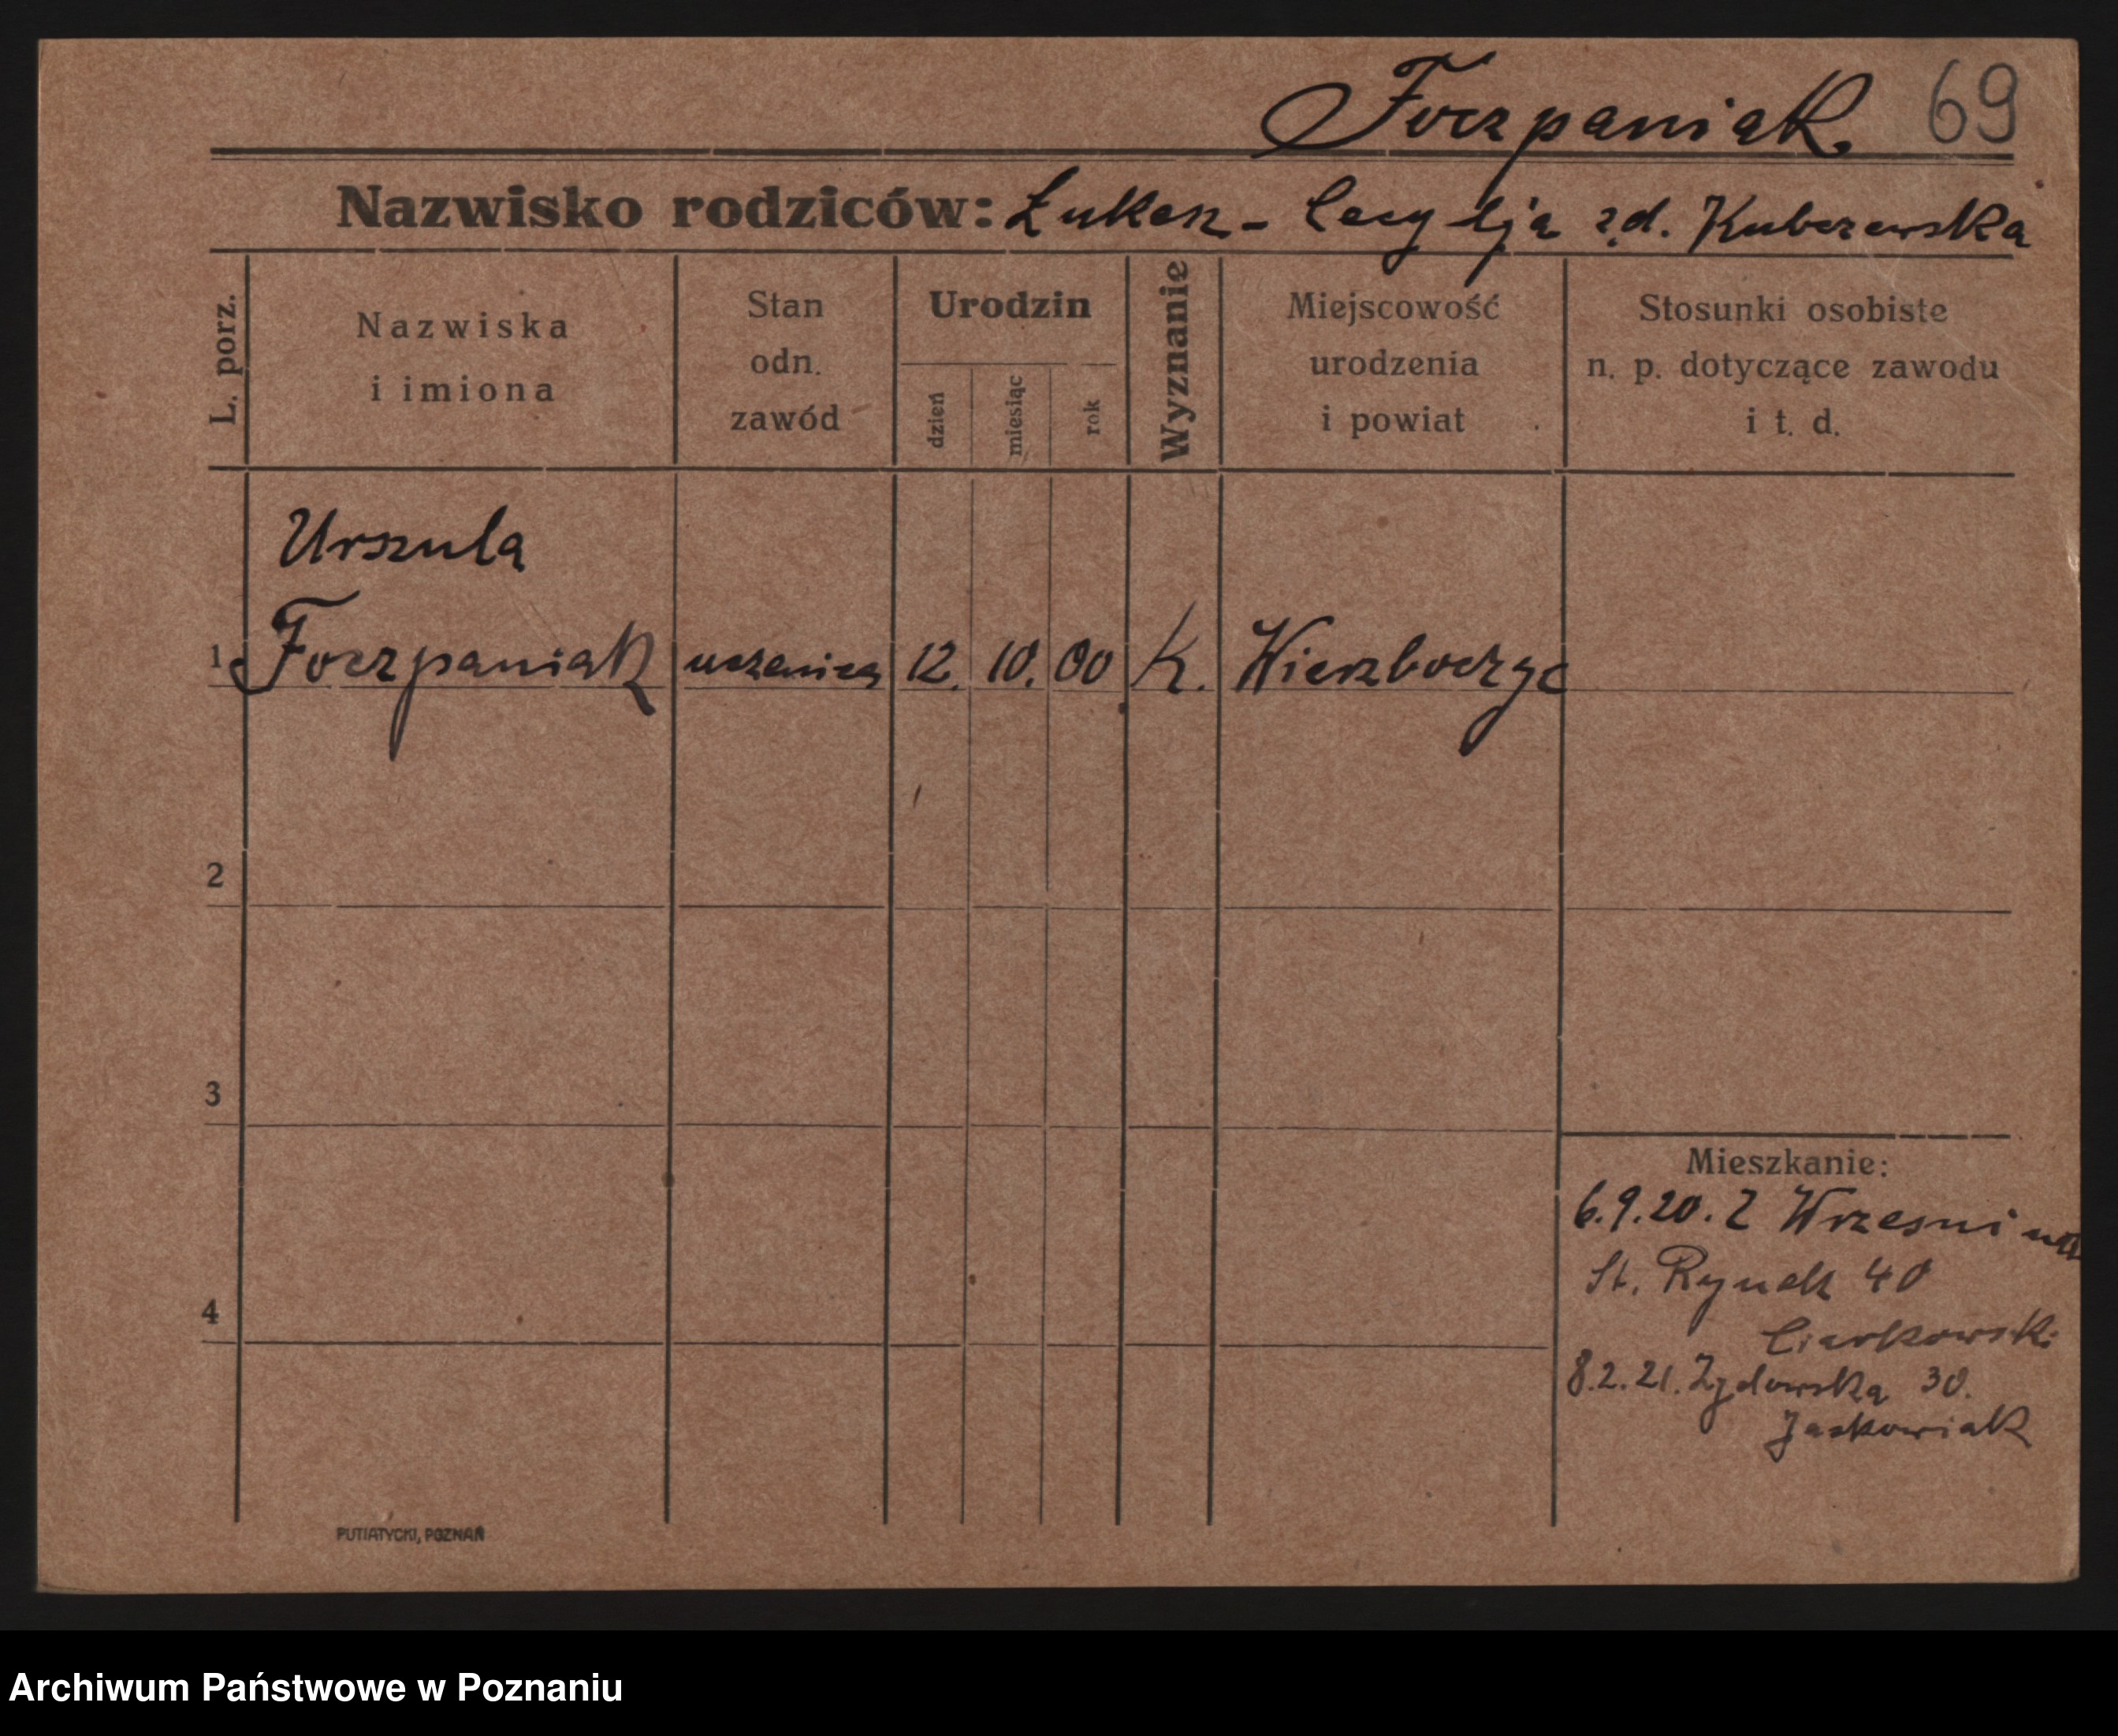 Foczpaniak 69
Nazwisko rodziców: Łukasz - Cecylja z.d. Kubczewska
L. porz.
Nazwiska
i imiona
Stan
odn.
zawód
Urodzin
dzień
miesiąc
rok
Wyznanie
Miejscowość
urodzenia
i powiat
Stosunki osobiste
n. p. dotyczące zawodu
i t. d.
Urszula
1 Foczpaniak uczenica 12. 10. 00 K. Wierzboczyc
2
3
4
Mieszkanie:
6.9.20. Z Wrzesni na
St. Rynek 40
Ciarkowski
8.2.21. Żydowska 30.
Jaskowiak
PUTIATYCKI, POZNAŃ
Archiwum Państwowe w Poznaniu